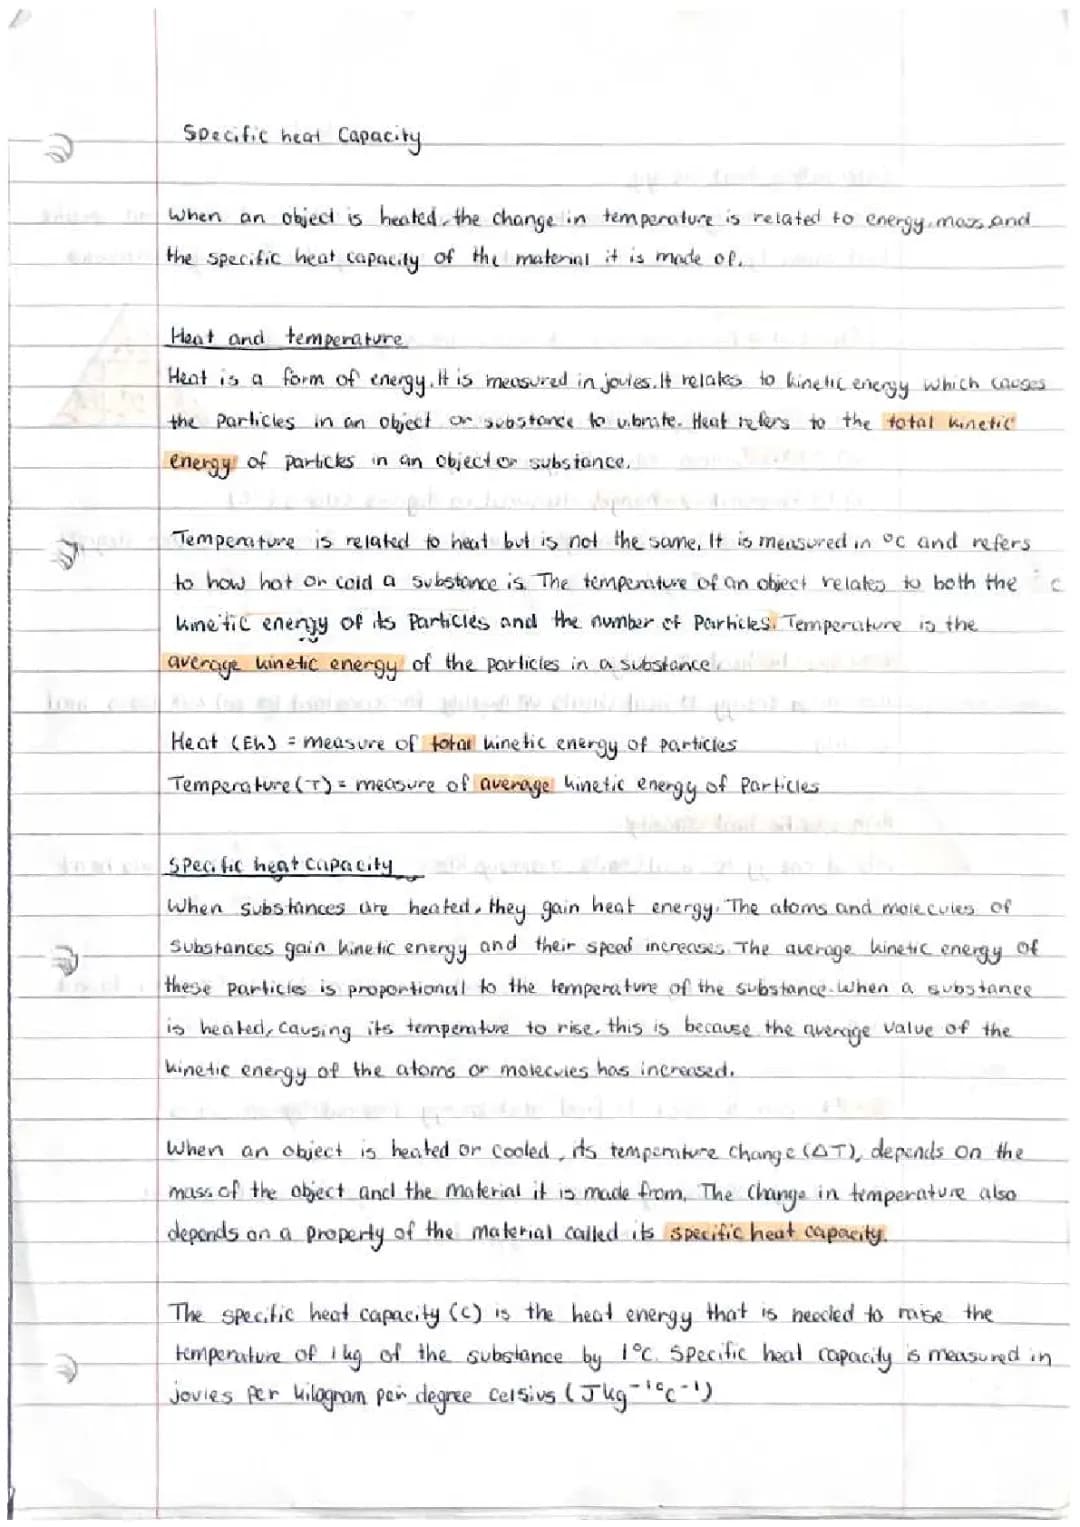 Specific heat Capacity
When an object is heated, the change in temperature is related to energy, mass and
the specific heat capacity of the material it is made of.
Heat and temperature
Heat is a form of energy. It is measured in joules. It relates to kinetic energy which causes
the particles in an object or substance to vibrate. Heat refers to the total kinetic
energy of particles in an object or substance.
Temperature is related to heat but is not the same. It is measured in °C and refers
to how hot or cold a substance is. The temperature of an object relates to both the
kinetic energy of its Particles and the number of Particles. Temperature is the
average kinetic energy of the particles in a substance.
Heat (Eh) = measure of total kinetic energy of particles
Temperature (T) = measure of average kinetic energy of Particles
Specific heat capacity
When substances are heated, they gain heat energy. The atoms and molecules of
substances gain kinetic energy and their speed increases. The average kinetic energy of
these particles is proportional to the temperature of the substance. When a substance
is heated, causing its temperature to rise, this is because the average value of the
kinetic energy of the atoms or molecules has increased.
When an object is heated or cooled, its temperature change (ΔT), depends on the
mass of the object and the material it is made from. The change in temperature also
depends on a property of the material called its specific heat capacity.
The specific heat capacity (c) is the heat energy that is needed to raise the
temperature of 1kg of the substance by 1°C. Specific heat capacity is measured in
joules per kilogram per degree celsius (Jkg⁻¹°C⁻¹)